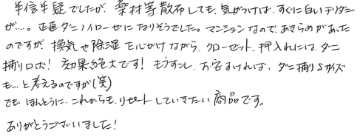 半信半疑でしたが、薬材等散布しても、気がつけば、すぐに白いチリダニ
が…。正直ダニノイローゼになりそうでした。マンションなので、あきらめがあった
のですが 換気や除湿を心がけながら、クローゼット、押入れには、ダニ
捕りロボ! 効果絶大です! もう少し、お安ければ、ダニ捕りSサイズ
も…と考えるのですが(笑)
でも ほんとうに、これからも、リピートしていきたい商品です。
ありがとうございました!